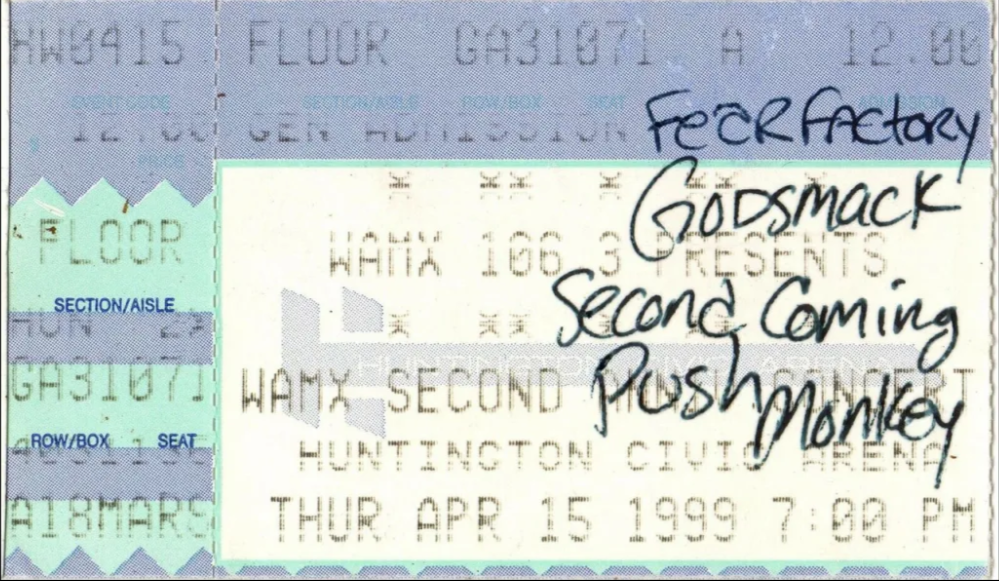 HW0415 FLOOR GA31071 A 12.00
EVENT CODE SECTION/AISLE ROW/BOX SEAT ADMISSION
12.00 GEN ADMISSION
PRICE
FeaR FActoRy
GoDsmack
Second Coming
Push Monkey
FLOOR
SECTION/AISLE
GA31071
ROW/BOX SEAT
A18MAR9
WAMX 106.3 PRESENTS
WAMX SECOND CONCERT
HUNTINGTON CIVIC ARENA
THUR APR 15 1999 7:00 PM